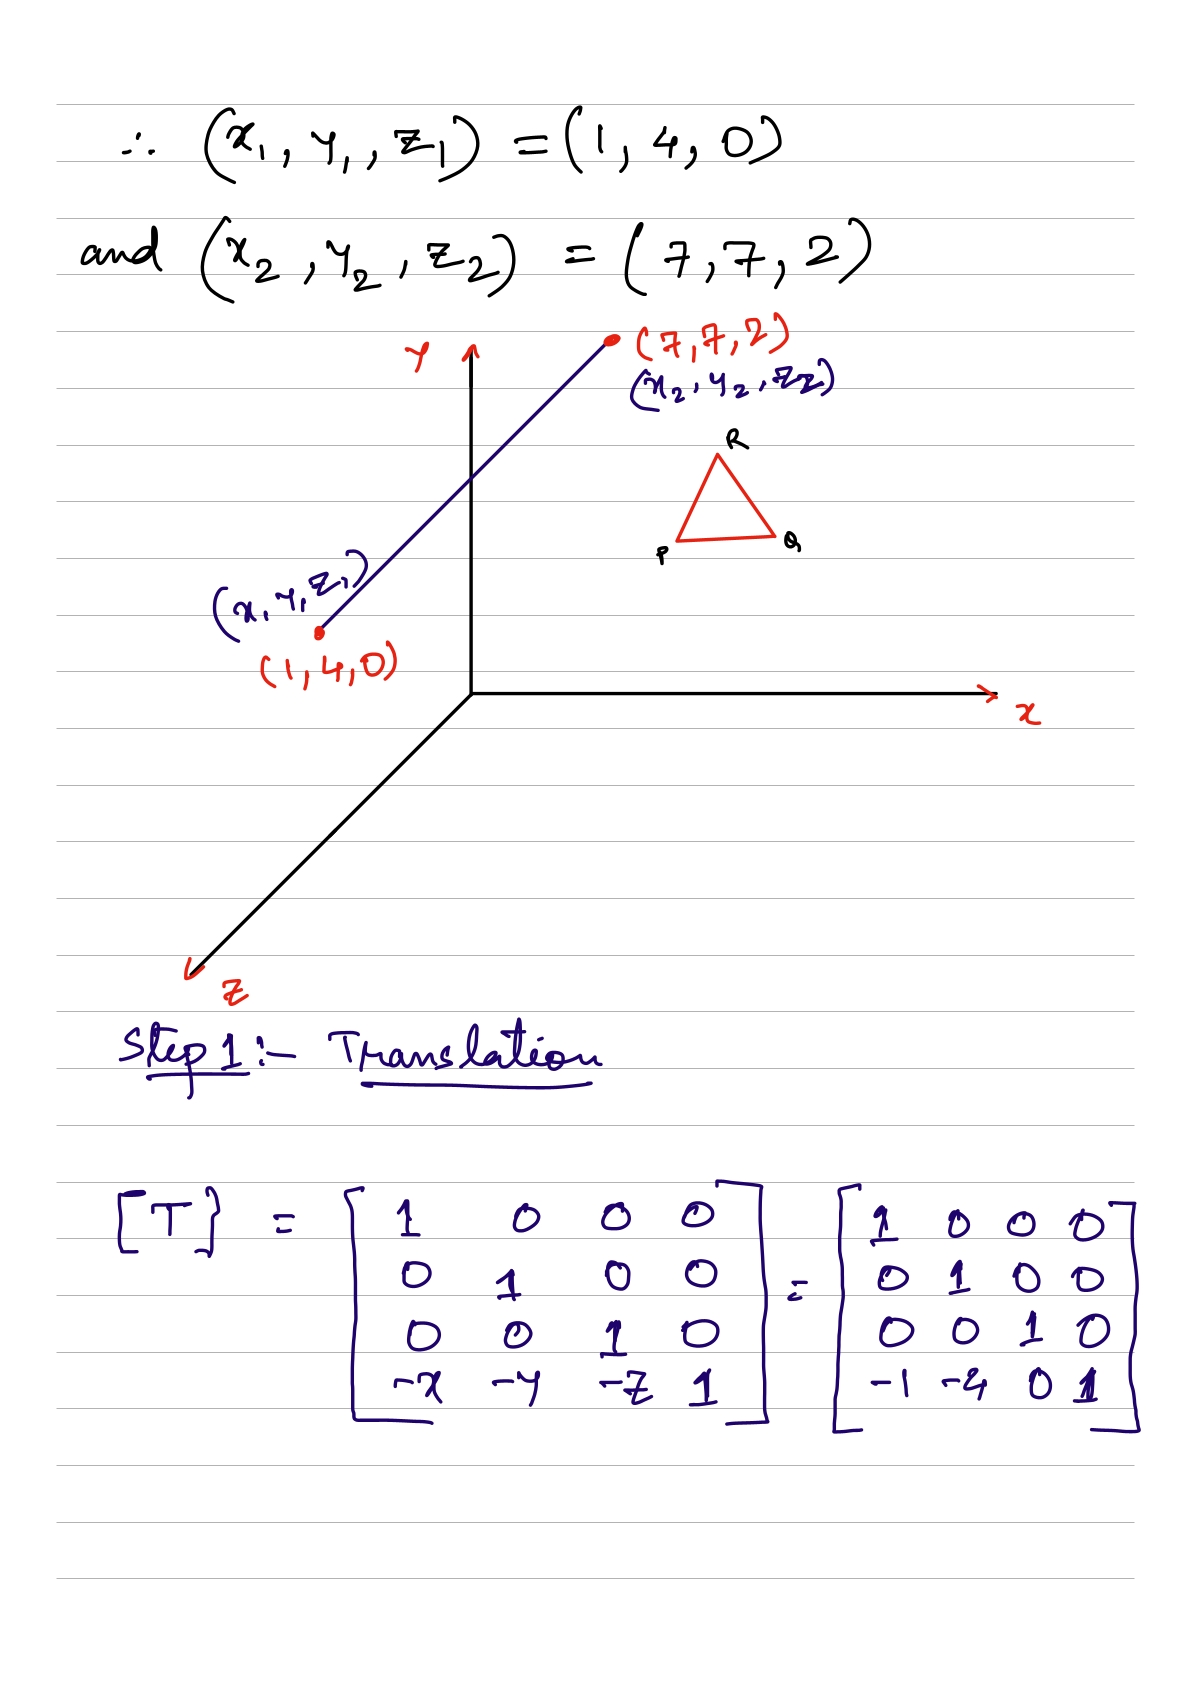 ∴ (x₁, y₁, z₁) = (1, 4, 0)
and (x₂, y₂, z₂) = (7, 7, 2)
Y
(7, 7, 2)
(x₂, y₂, z₂)
R
P
Q
(x₁ y₁ z₁)
(1, 4, 0)
x
z
Step 1 :- Translation
[T] = [1 0 0 0 = [1 0 0 0
0 1 0 0 0 1 0 0
0 0 1 0 0 0 1 0
-x -y -z 1] -1 -4 0 1]